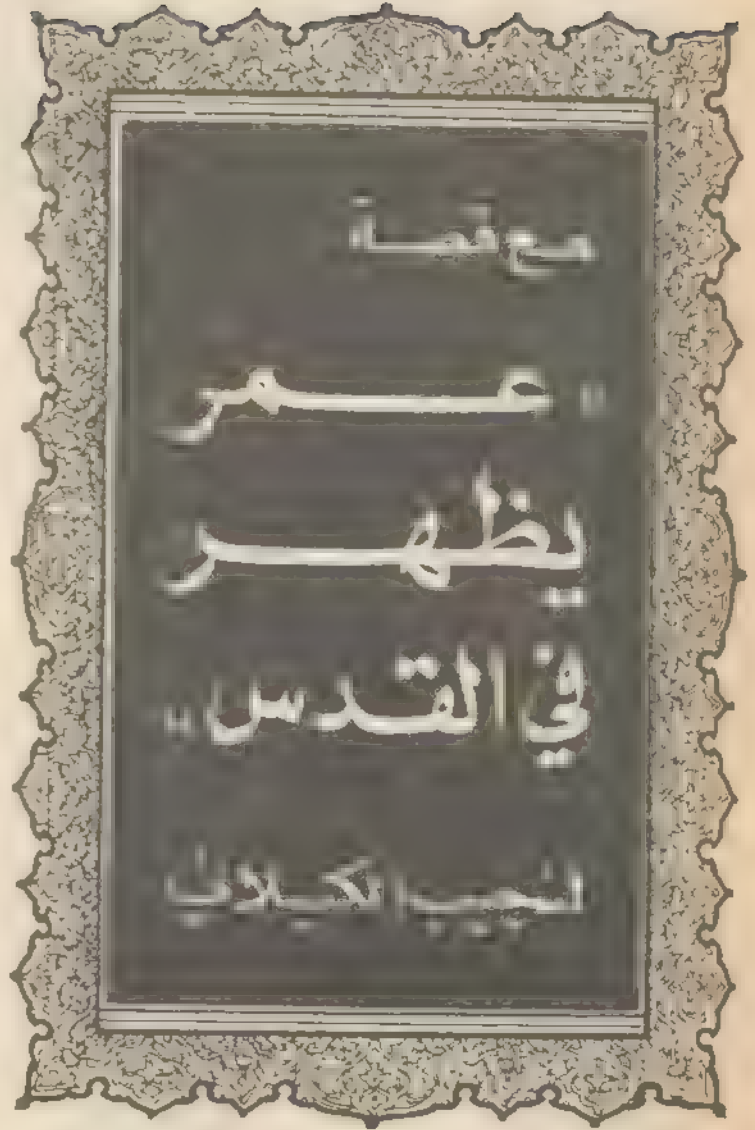 مع قصة
« عمر
يظهر
في القدس »
لنجيب الكيلاني